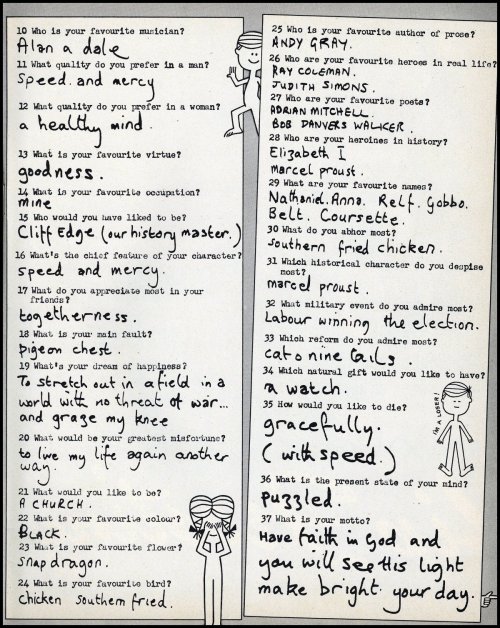 10 Who is your favourite musician?
Alan a dale
11 What quality do you prefer in a man?
Speed and mercy
12 What quality do you prefer in a woman?
a healthy mind.
13 What is your favourite virtue?
goodness.
14 What is your favourite occupation?
mine
15 Who would you have liked to be?
Cliff Edge (our history master.)
16 What's the chief feature of your character?
speed and mercy.
17 What do you appreciate most in your
friends?
togetherness.
18 What is your main fault?
pigeon chest.
19 What's your dream of happiness?
To stretch out in a field in a
world with no threat of war...
and graze my knee
20 What would be your greatest misfortune?
to live my life again another
way.
21 What would you like to be?
A CHURCH.
22 What is your favourite colour?
BLACK.
23 What is your favourite flower?
snap dragon.
24 What is your favourite bird?
chicken southern fried.
25 Who is your favourite author of prose?
ANDY GRAY.
26 Who are your favourite heroes in real life?
RAY COLEMAN.
JUDITH SIMONS.
27 Who are your favourite poets?
ADRIAN MITCHELL.
BOB DANVERS WALKER.
28 Who are your heroines in history?
Elizabeth I
marcel proust.
29 What are your favourite names?
Nathaniel. Anna. Relf. Gobbo.
Belt. Coursette.
30 What do you abhor most?
southern fried chicken.
31 Which historical character do you despise
most?
marcel proust.
32 What military event do you admire most?
Labour winning the election.
33 Which reform do you admire most?
cat o nine tails.
34 Which natural gift would you like to have?
a watch.
35 How would you like to die?
gracefully.
(with speed.)
I'M A LOSER!
36 What is the present state of your mind?
puzzled.
37 What is your motto?
Have faith in God and
you will see His light
make bright your day.